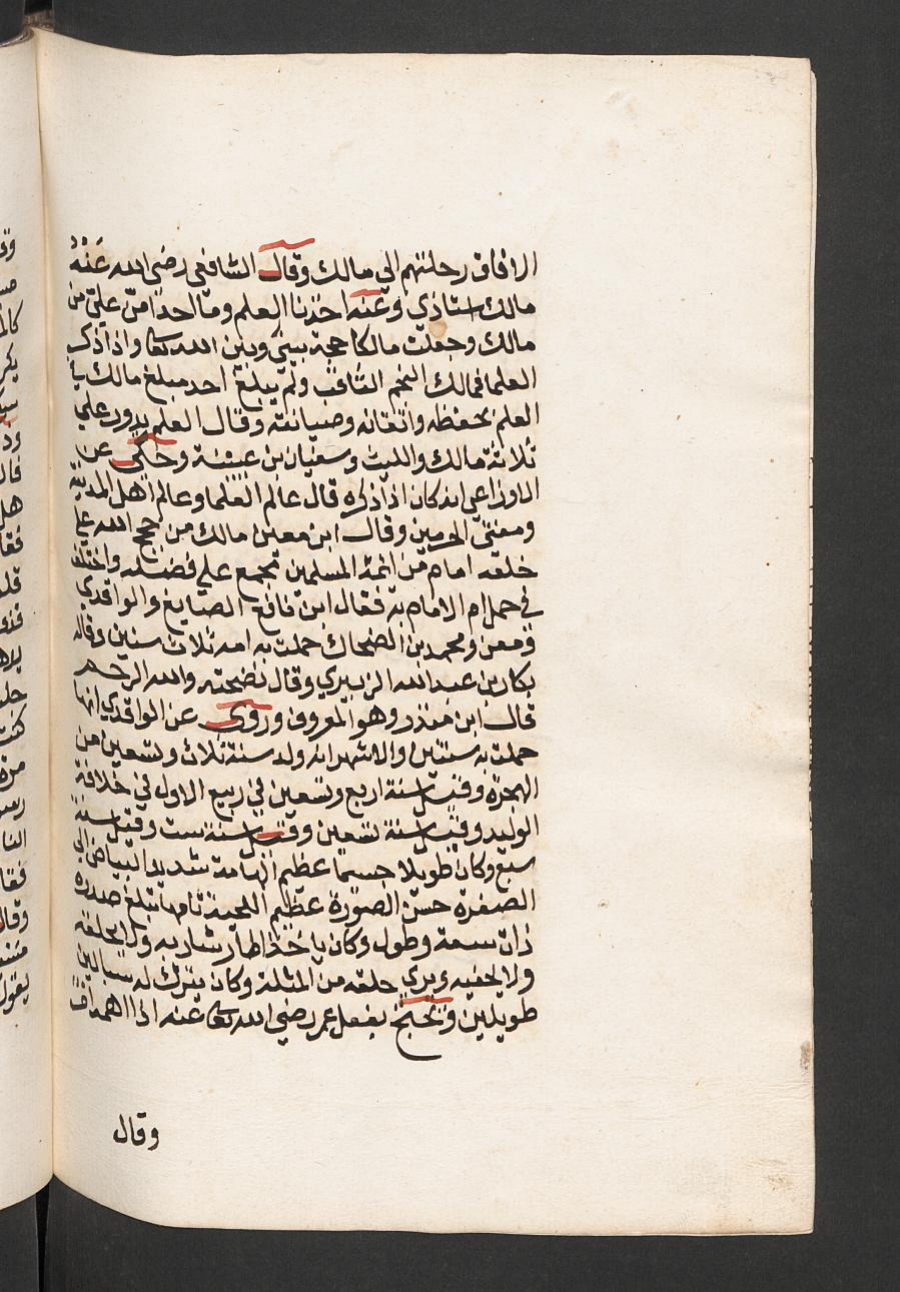 الافاق رحلتهم الي مالك وقال الشافعي رضي الله عنه
مالك استاذي وعنه اخذنا العلم وما احد امنّ عليّ من
مالك وجعلت مالكا حجة بيني وبين الله تعا واذا ذكر
العلما فمالك النجم الثاقب ولم يبلغ احد مبلغ مالك في
العلم لحفظه واتقانه وصيانته وقال العلم يدور علي
ثلاثة مالك والليث وسفيان بن عيينة وحكي عن
الاوزاعي انه كان اذا ذكره قال عالم العلما وعالم اهل المدينة
ومفتي الحرمين وقال ابن معين مالك من حجج الله علي
خلقه امام من ائمة المسلمين مجمع علي فضله واختلف
في حمل ام الامام به فقال ابن نافع الصايغ والواقدي
ومعن ومحمد بن الضحاك حملت به امه ثلاث سنين وقاله
بكار بن عبد الله الزبيري وقال نضجته والله الرحم
قال ابن منذر وهو المعروف وروي عن الواقدي انها
حملت به سنتين والاشهر انه ولد سنة ثلاث وتسعين من
الهجرة وقيل سنة اربع وتسعين في ربيع الاول في خلافة
الوليد وقيل سنة تسعين وقيل سنة ست وقيل سنة
سبع وكان طويلا جسيما عظيم الهامة شديد البياض الي
الصفرة حسن الصورة عظيم اللحية تامها تبلغ صدره
ذات سعة وطول وكان ياخذ اطار شاربه ولا يحلقه
ولا يحفيه ويري حلقه من المثلة وكان يترك له سبالين
طويلين ويحتج بفعل عمر رضي الله تعا عنه اذا اهمه امر
وقال